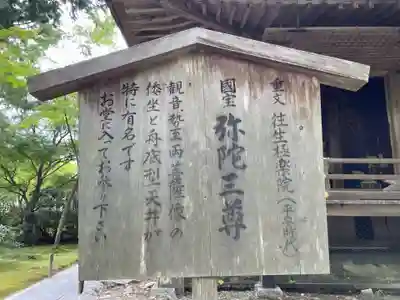 重文 往生極楽院（平安時代）
國宝 弥陀三尊
観音、勢至両菩薩像の
倭坐と舟底型天井が
特に有名です
お堂に入ってお参り下さい